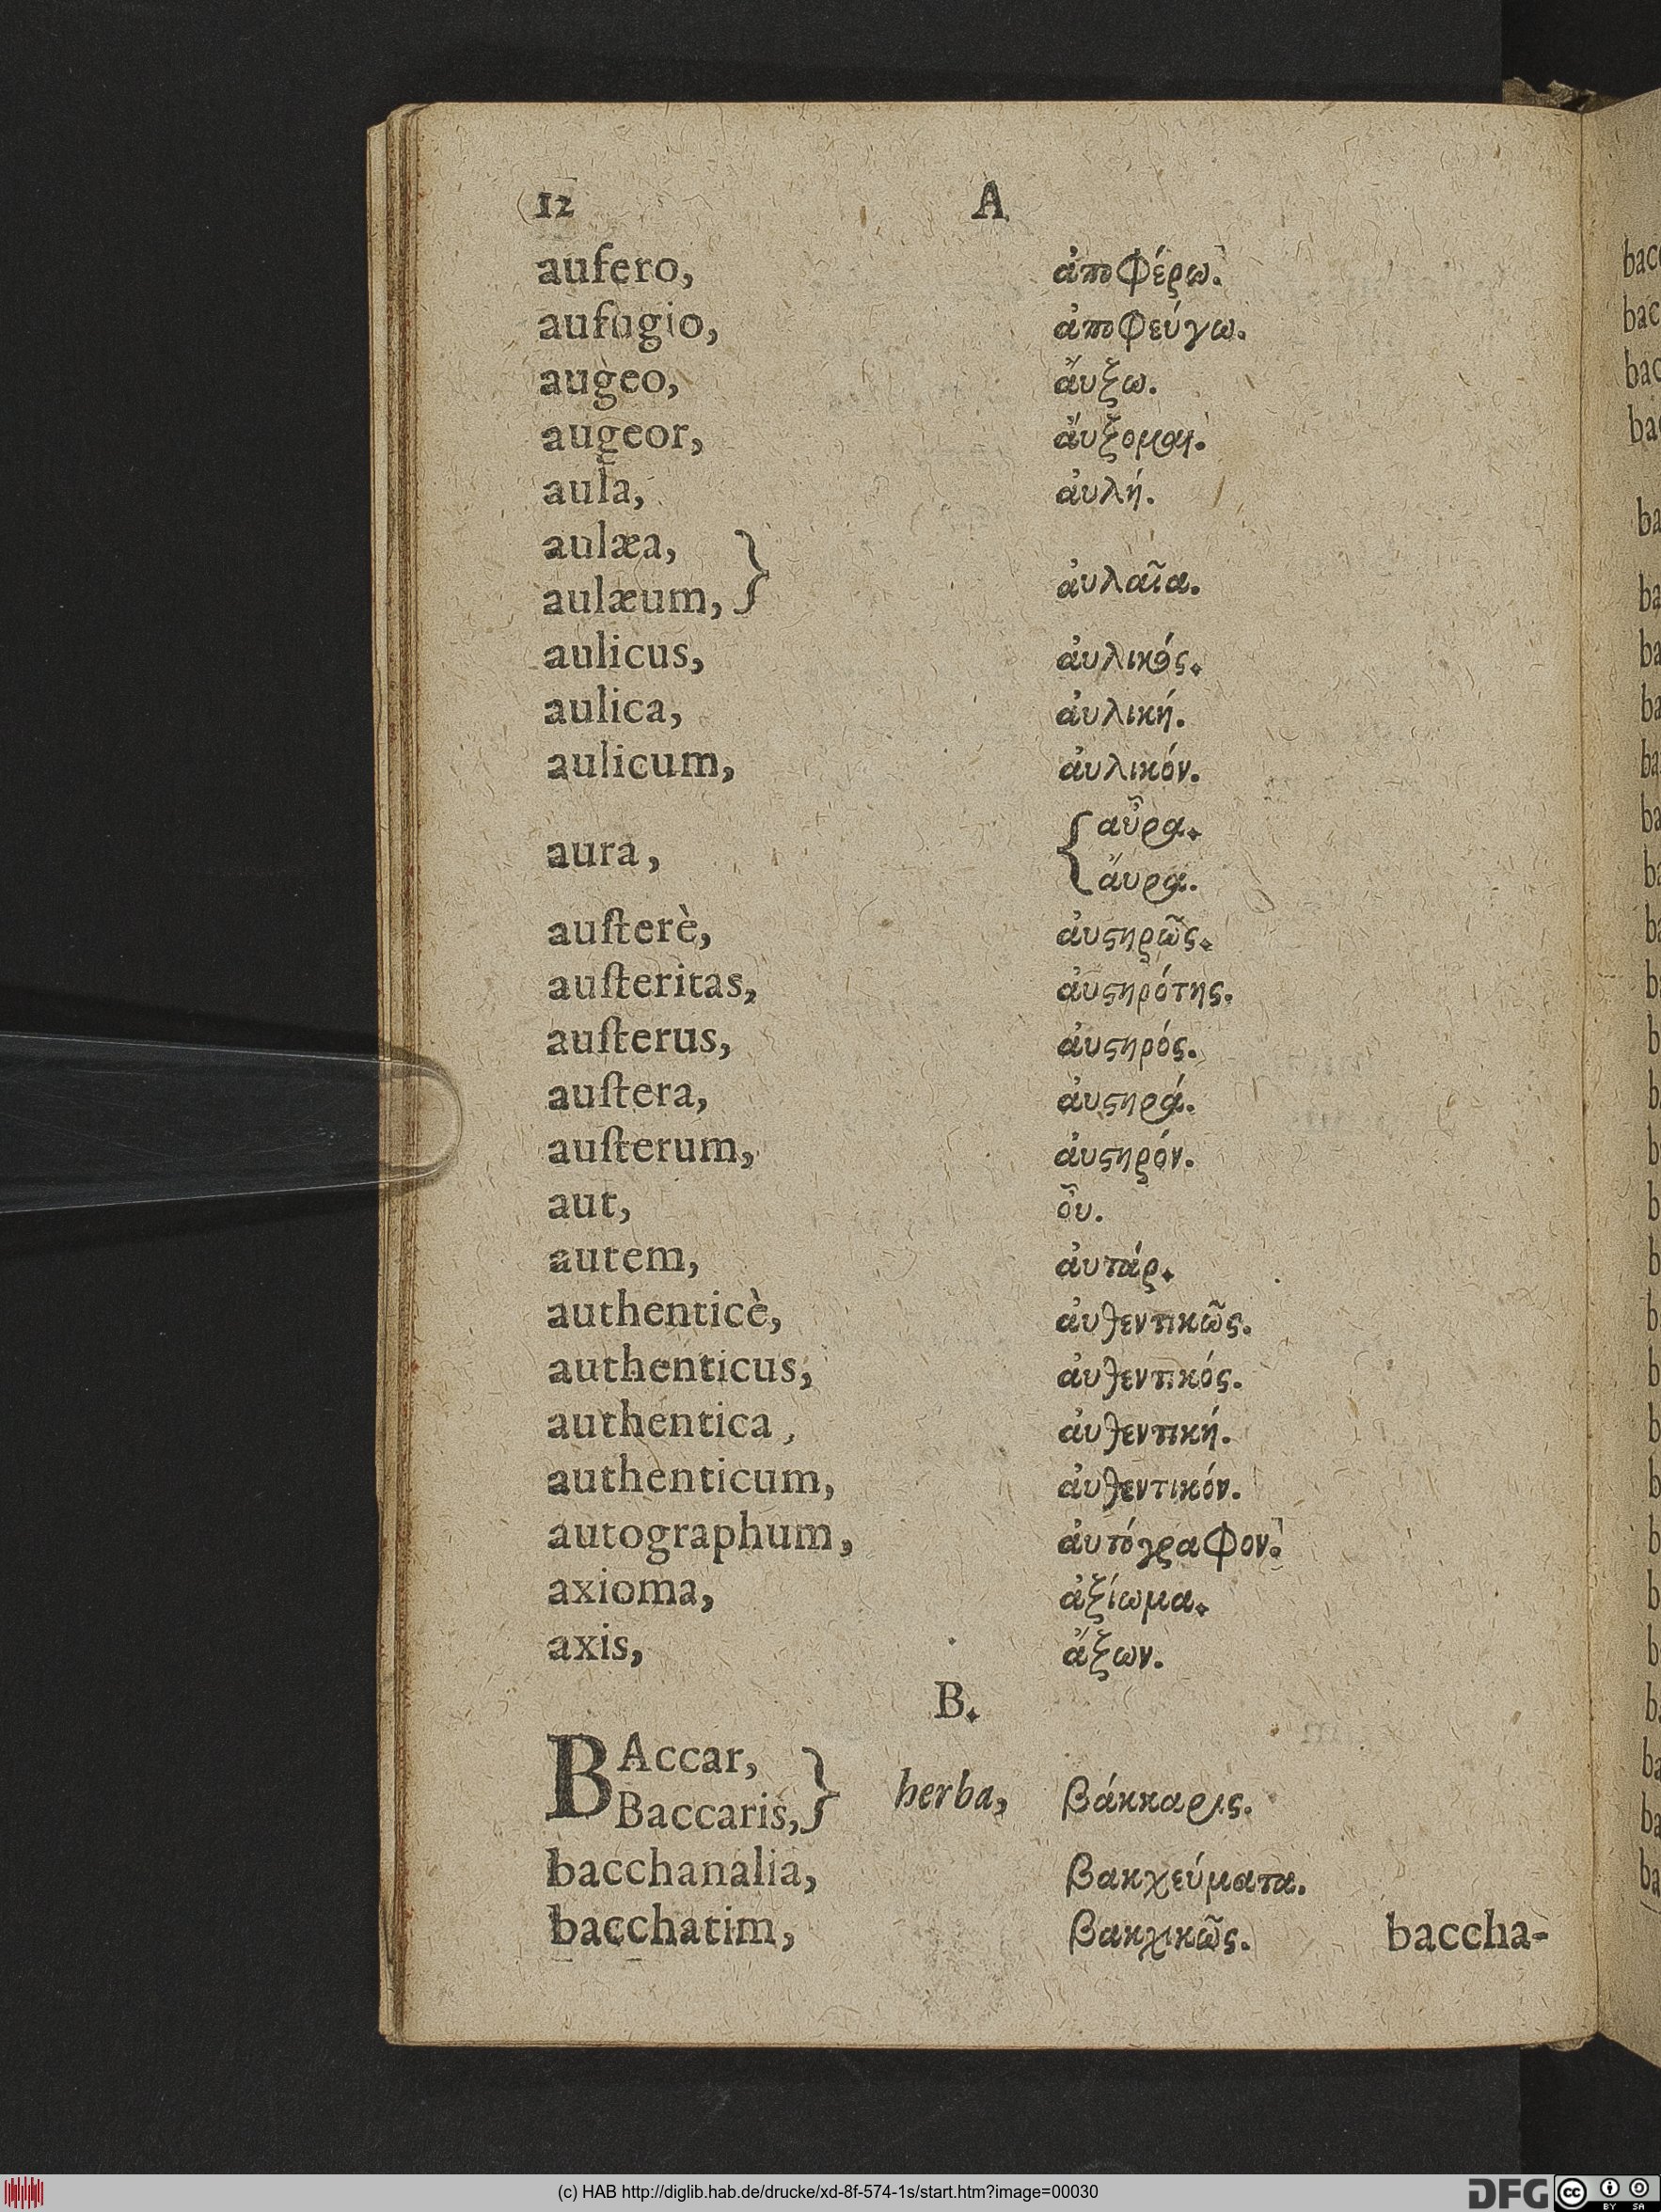 12 A
aufero, ἀποφέρω.
aufugio, ἀποφεύγω.
augeo, ἄυξω.
augeor, ἄυξομαι.
aula, ἀυλή.
aulæa,
aulæum, } ἀυλαῖα.
aulicus, ἀυλικός.
aulica, ἀυλική.
aulicum, ἀυλικόν.
aura, { αὖρα.
ἄυρα.
auſterè, ἀυϛηρῶς.
auſteritas, ἀυϛηρότης.
auſterus, ἀυϛηρός.
auſtera, ἀυϛηρά.
auſterum, ἀυϛηρόν.
aut, ὂυ.
autem, ἀυτάρ.
authenticè, ἀυθεντικῶς.
authenticus, ἀυθεντικός.
authentica, ἀυθεντική.
authenticum, ἀυθεντικόν.
autographum, ἀυτόγραφον.
axioma, ἀξίωμα.
axis, ἄξων.
B.
BAccar,
Baccaris, } herba, βάκκαρις.
bacchanalia, βακχεύματα.
bacchatim, βακχικῶς. baccha-
(c) HAB http://diglib.hab.de/drucke/xd-8f-574-1s/start.htm?image=00030
DFG cc BY SA